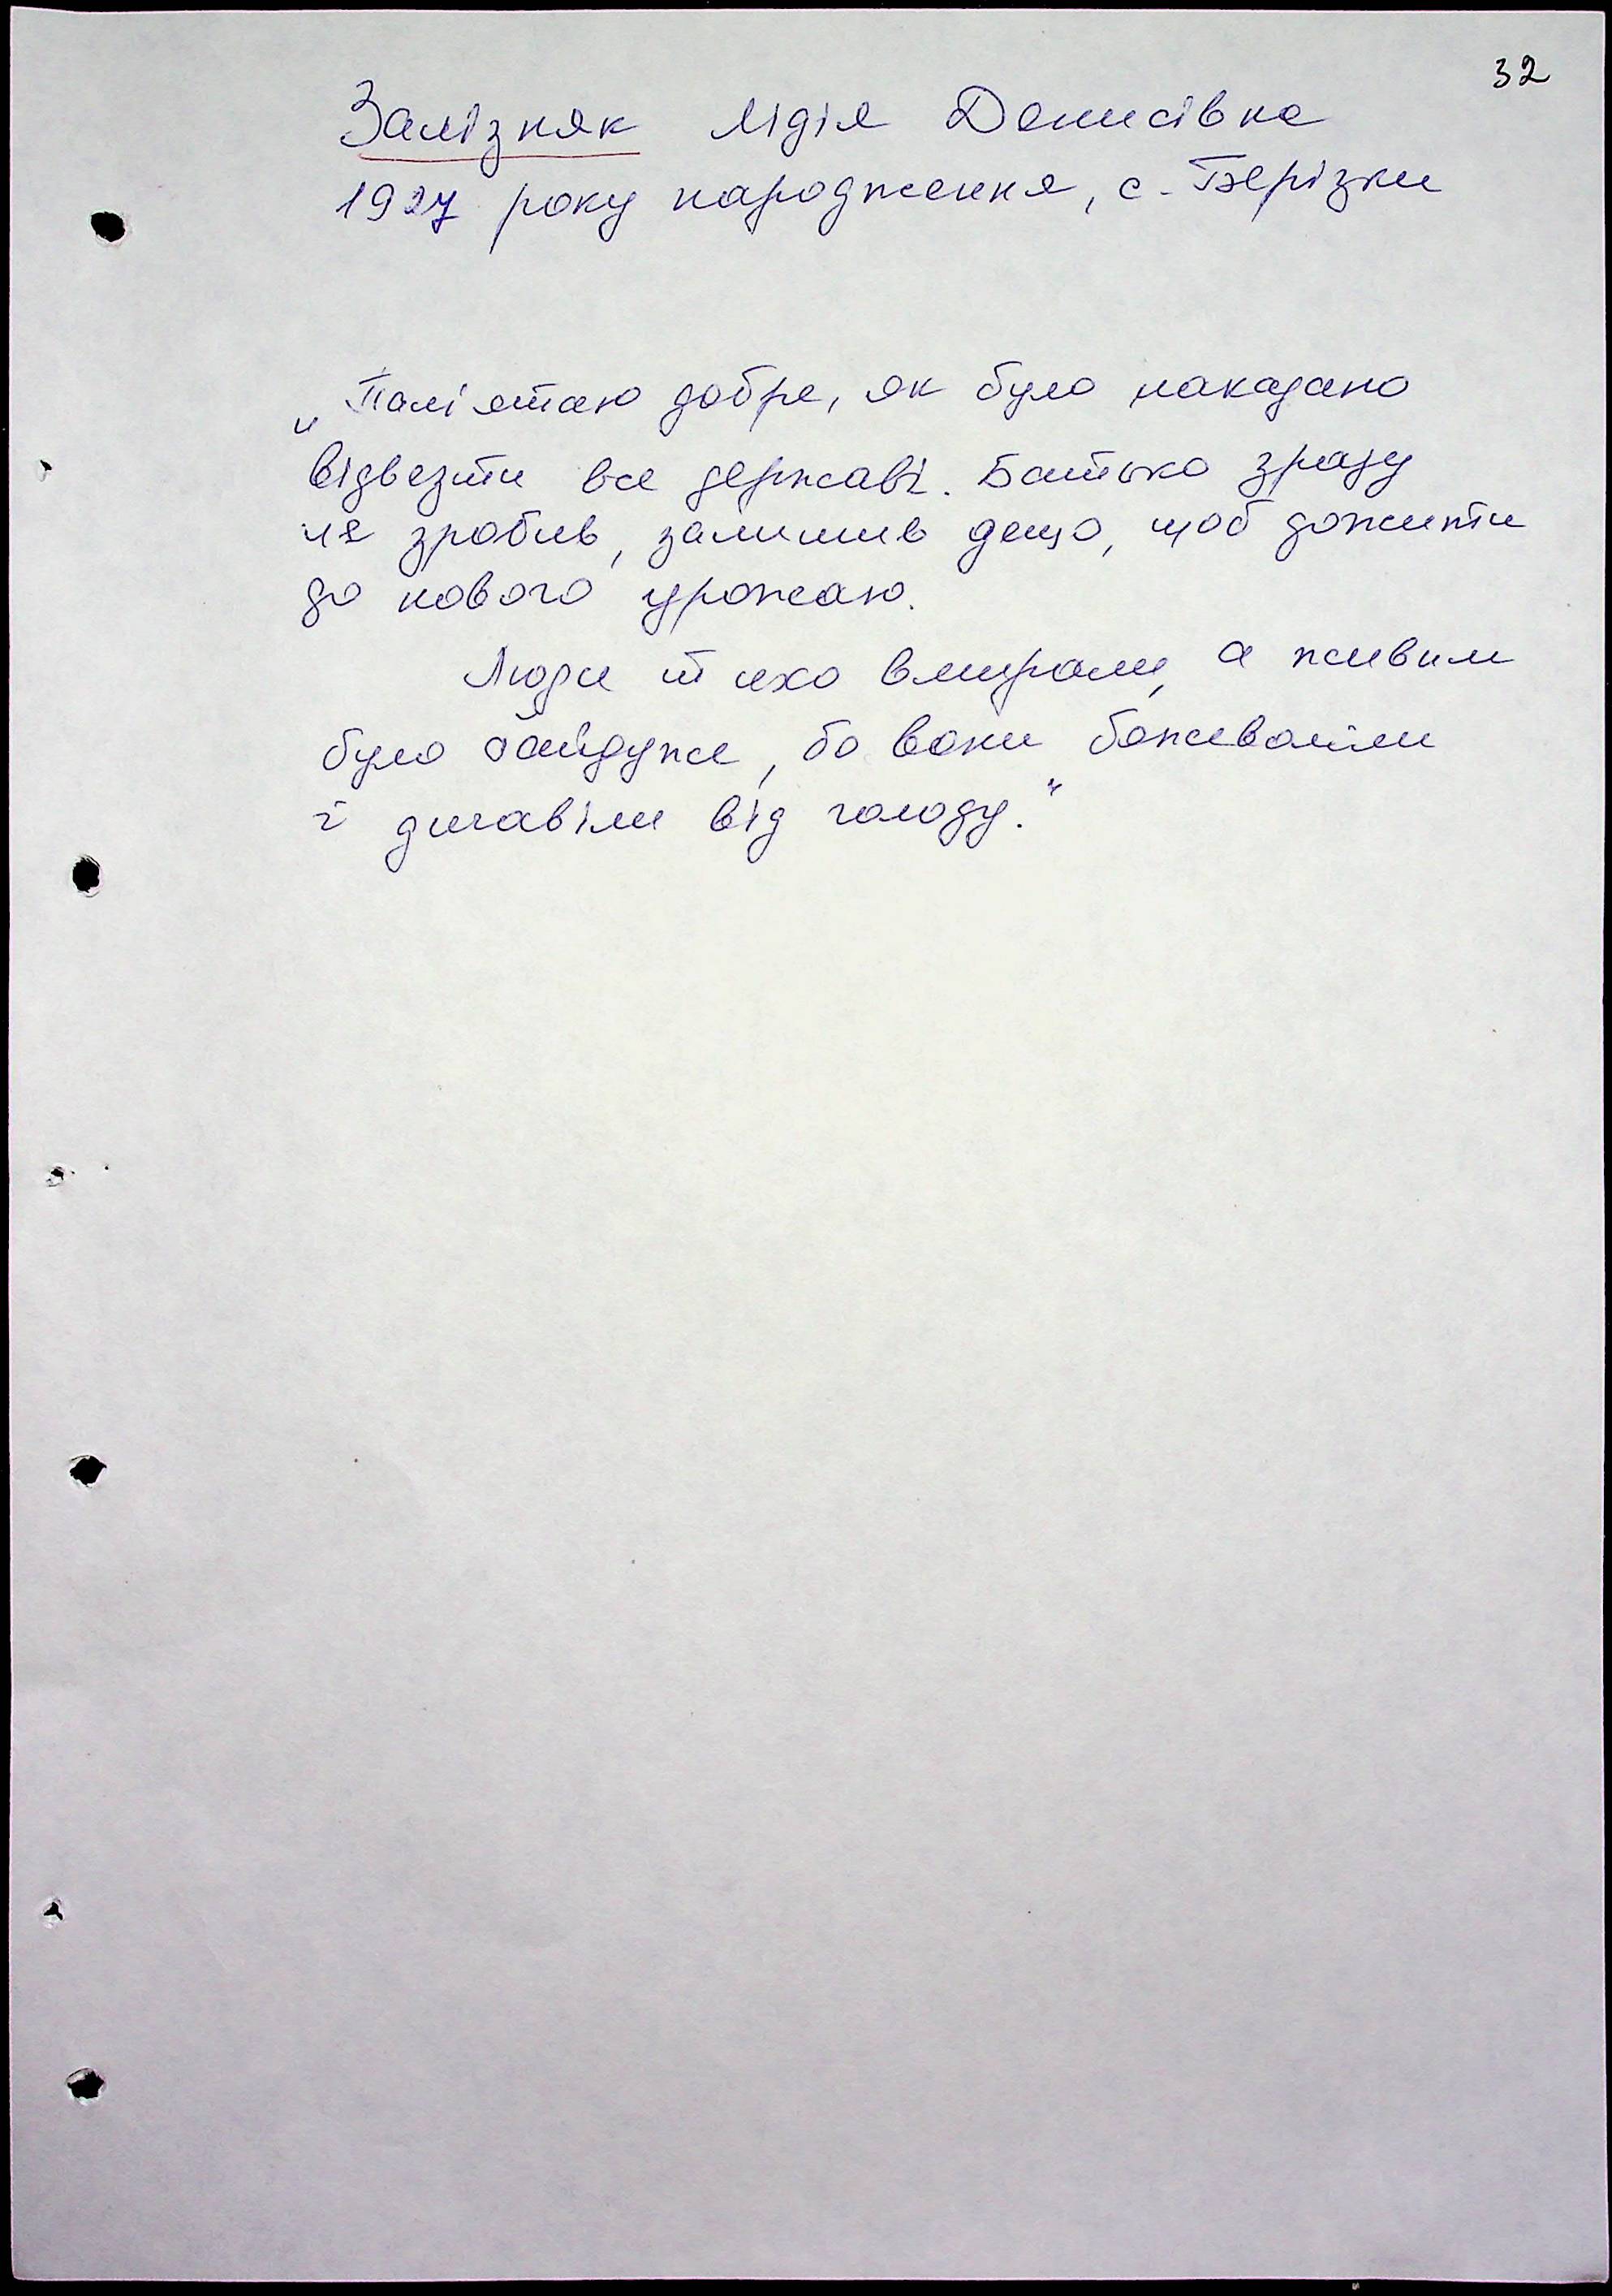 32
Залізняк Лідія Денисівна
1927 року народження, с. Берізки
„Пам'ятаю добре, як було наказано
відвезти все державі. Батько зразу
не зробив, залишив дещо, щоб дожити
до нового урожаю.
Люди тихо вмирали, а живим
було байдуже, бо вони божеволіли
і дичавіли від голоду."